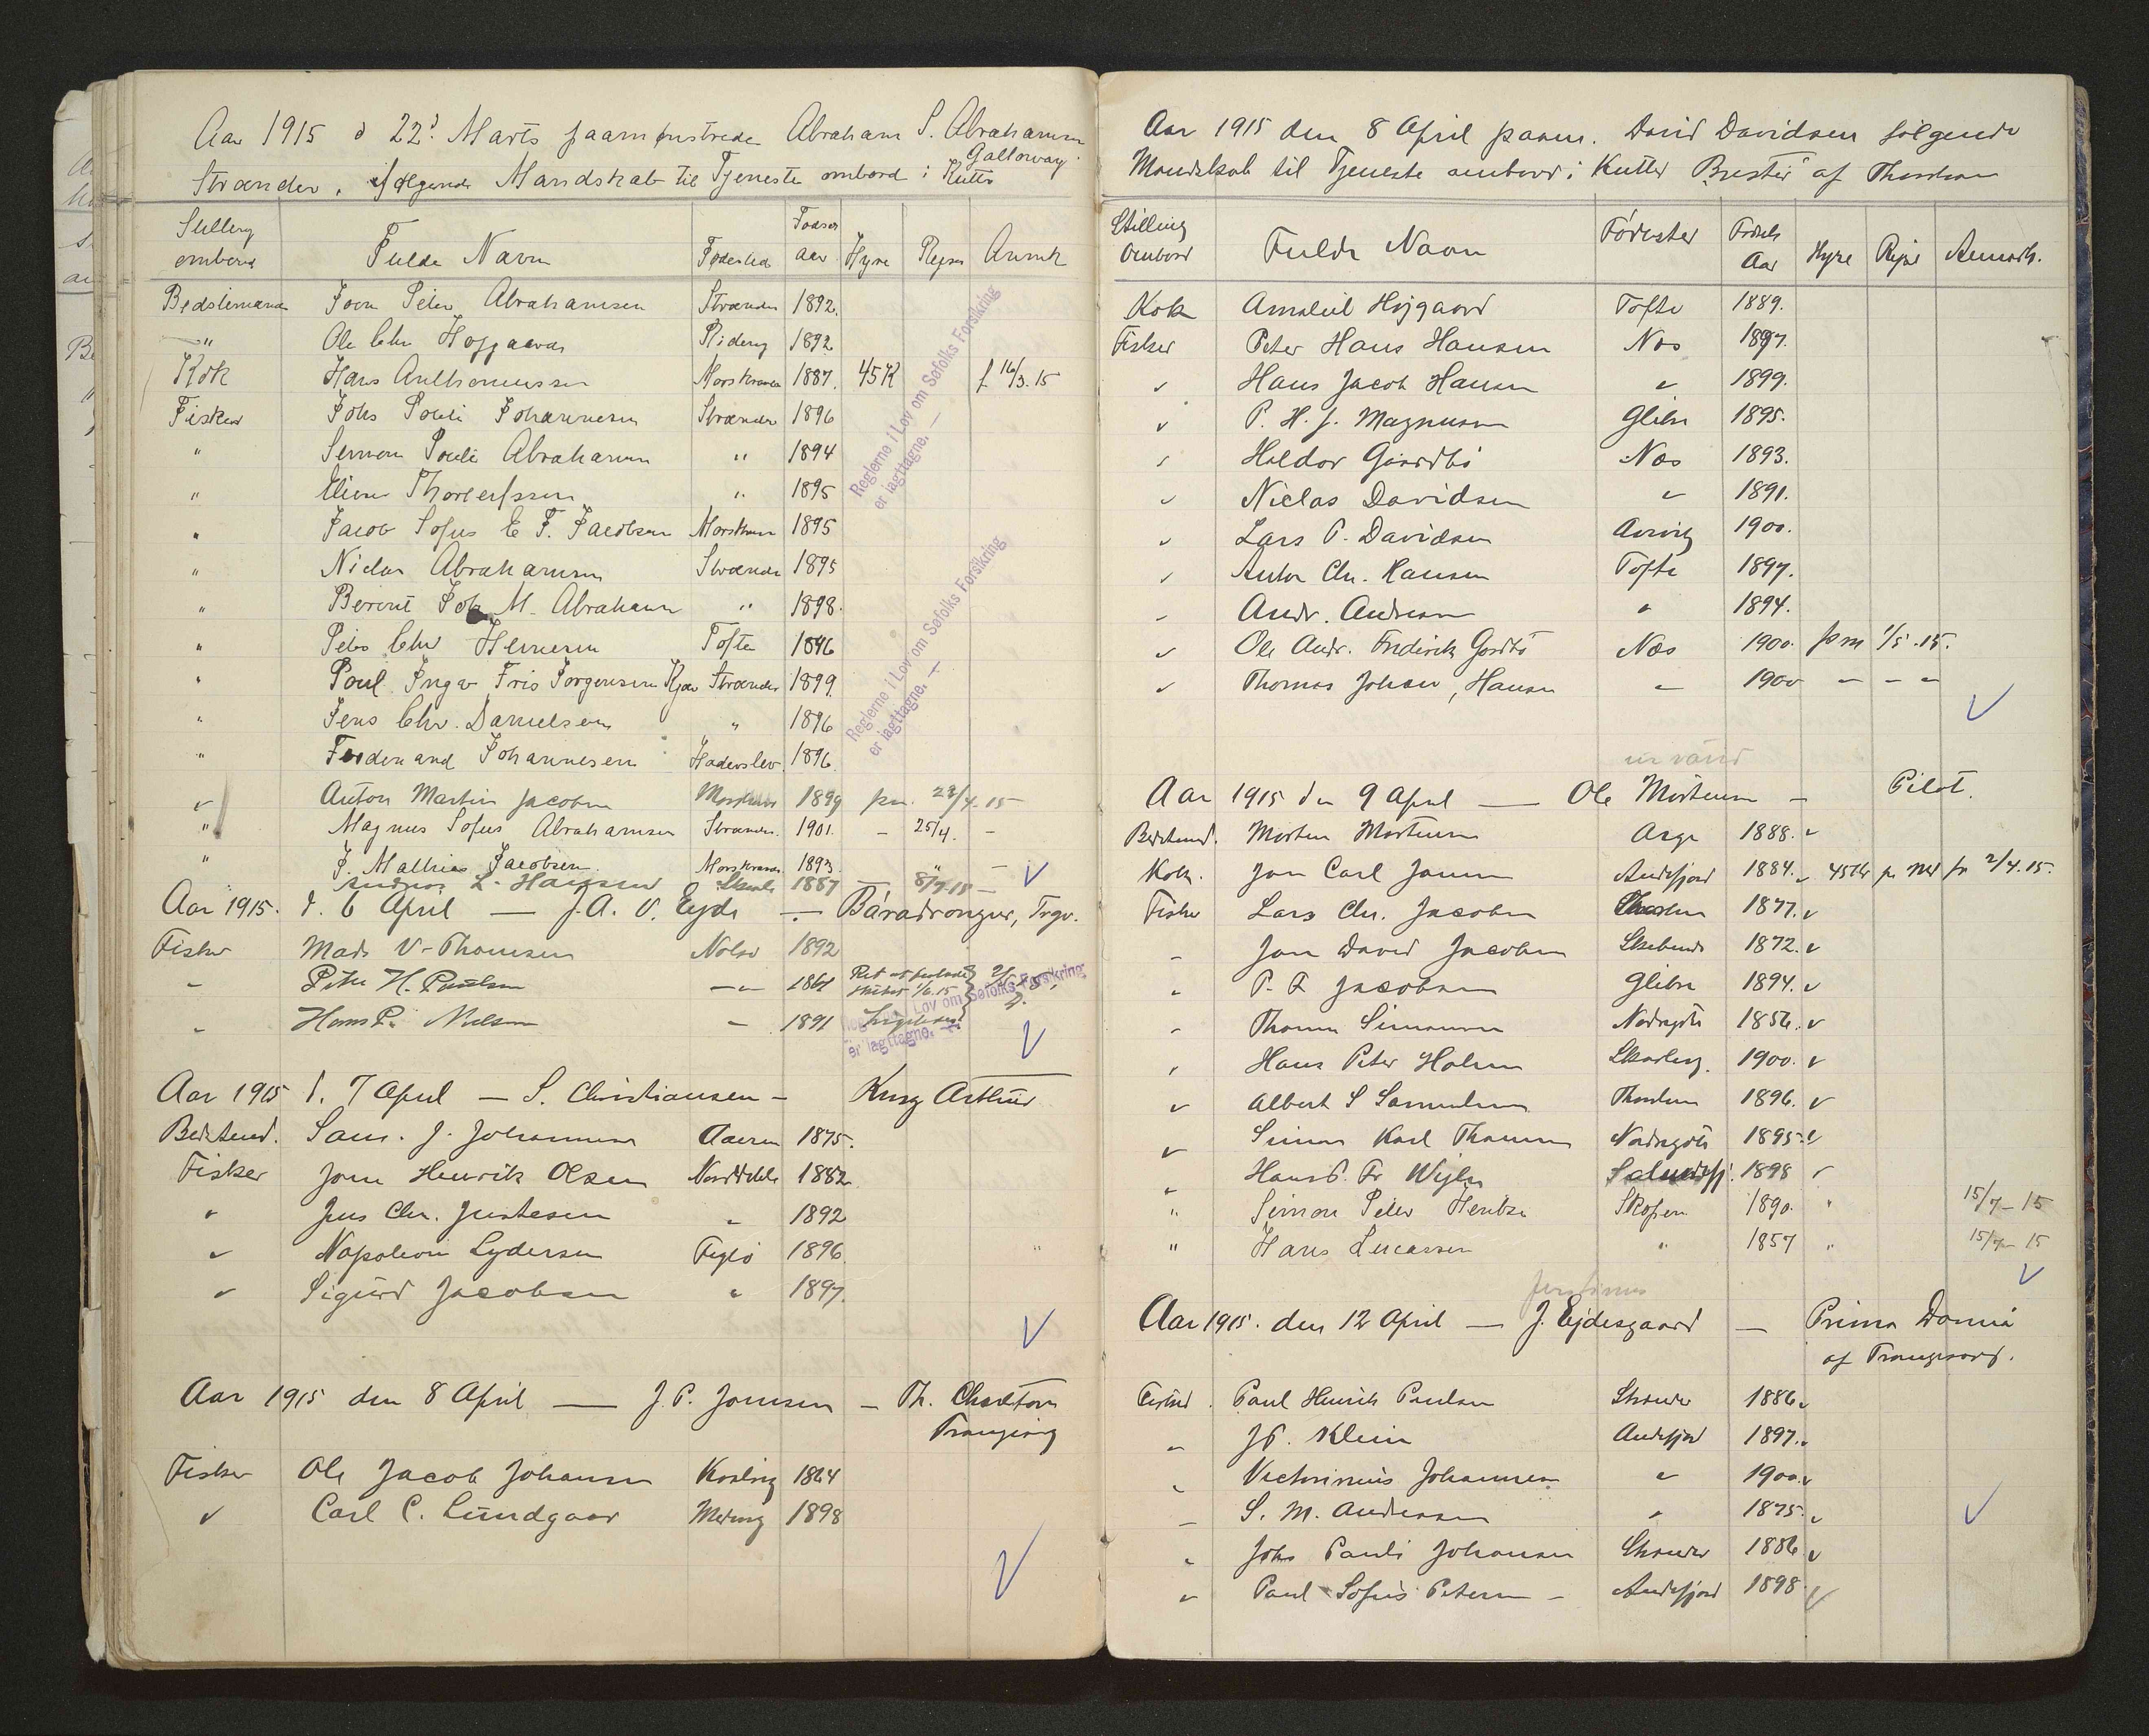 Aar 1915 d 22d Marts paamønstrede Abraham S. Abrahamsen
Galloway
Strænder, følgende Mandskab til Tjeneste ombord i Kutter
Stilling ombord Fulde Navn Fødested Fødsels aar Hyre Rejse Anmk
Bedstemand Joen Peter Abrahamsen Strænder 1892.
" Ole Chr Højgaard Ridevig 1892
Kok Hans Anthoniussen Morskranes 1887. 45 K f 16/3. 15
Fisker Johs Pouli Johannesen Strænder 1896
" Simon Pouli Abrahamsen " 1894
" Elieser Thorleifssen " 1895
" Jacob Sofus E F. Jacobsen Morskranes 1895
" Niclas Abrahamsen Strænder 1895
" Berint Joh M. Abrahamsen " 1898.
" Peter Chr Hermansen Tofte 1896
" Poul Ingv Fris Jørgensen Kjær Strænder 1899.
" Jens Chr. Danielsen " 1896
" Ferdinand Johannesen Haderslev. 1896
" Anton Martin Jacobsen Morskranes 1899 pm. 23/4. 15
" Magnus Sofus Abrahamsen Strænder. 1901. - 25/4. -
" J. Mathias Jacobsen Morskranes 1893. - " -
L. Hansen 1887 -
Reglerne i Lov om Søfolks Forsikring
er iagttagne. —
Reglerne i Lov om Søfolks Forsikring
er iagttagne. —
Aar 1915. d. 6 April — J. A. V. Ejde — Báradrongur, Trgv.
Fisker Mads V. Thomsen Nolsø 1892
" Peter H. Poulsen — " — 1861
" Hans P. Nielsen " 1891
Lov om Søfolks Forsikring
er iagttagne. —
Aar 1915 d. 7 April — S. Christiansen — King Arthur
Bedstemd. Sam. J. Johannesen Aaren 1875.
Fisker Joen Henrik Olsen Norddeble 1882
" Jens Chr. Justesen " 1892
" Napoleon Lydersen Fuglø 1896
" Sigurd Jacobsen " 1897.
Aar 1915 den 8 April — J. P. Joensen — Th. Charlton
Trangisvg
Fisker Ole Jacob Johansen Kvalvig 1864
" Carl C. Lundgaar 1898
Aar 1915 den 8 April paam. David Davidsen følgende
Mandskab til Tjeneste ombord i Kutter "Brestir" af Thorshavn
Stilling Ombord Fulde Navn Fødester Fødsels Aar Hyre Rejse Anmærk.
Kok Annaleil Højgaard Tofte 1889.
Fisker Peter Hans Hansen Nes 1897.
" Hans Jacob Hansen " 1899.
" P. H. J. Magnusen Glibre 1895.
" Haldor Gaardbø Nes 1893.
" Niclas Davidsen " 1891.
" Lars P. Davidsen Avnvig 1900.
" Anton Chr. Hansen Tofte 1897.
" Andr. Andreasen " 1894.
" Ole Andr. Fridirik Gardbø Nes 1900. pm 1/5. 15.
" Thomas Johan, Hansen " 1900 - - -
Aar 1915 den 9 April — Ole Mortensen — Pilot.
Bedstemd. Morten Mortensen Arge 1888.
Kok. Jon Carl Joensen Andefjord 1884. 45 Kr pr Md fr 2/4. 15.
Fisker Lars Chr. Jacobsen 1877.
" Jon David Jacobsen 1872.
" P. F. Jacobsen Glibre 1894.
" Thomas Simonsen Nordragøta 1856.
" Hans Peter Holm Skaalevg. 1900.
" Albert S Samuelsen Thorshavn 1896.
" Simon Karl Thomsen Nordragøta 1895.
" Hans P. Fr Wejhe 1898
" Simon Peter Hentze Skopen 1890. " 15/7 - 15
" Hans Lucassen " 1857 " 15/7 - 15
Justinus
Aar 1915. den 12 April — J. Ejdesgaard — Prima Donna
af Trangisvaag.
Fisker Paul Henrik Poulsen Strænder 1886
" J. P. Klein Andefjord 1897.
" Victorinus Johannesen " 1900
" S. M. Andreasen " 1875.
" Johs Pauli Johansen Strænder 1886
" Paul Sofus Petersen Andefjord 1898